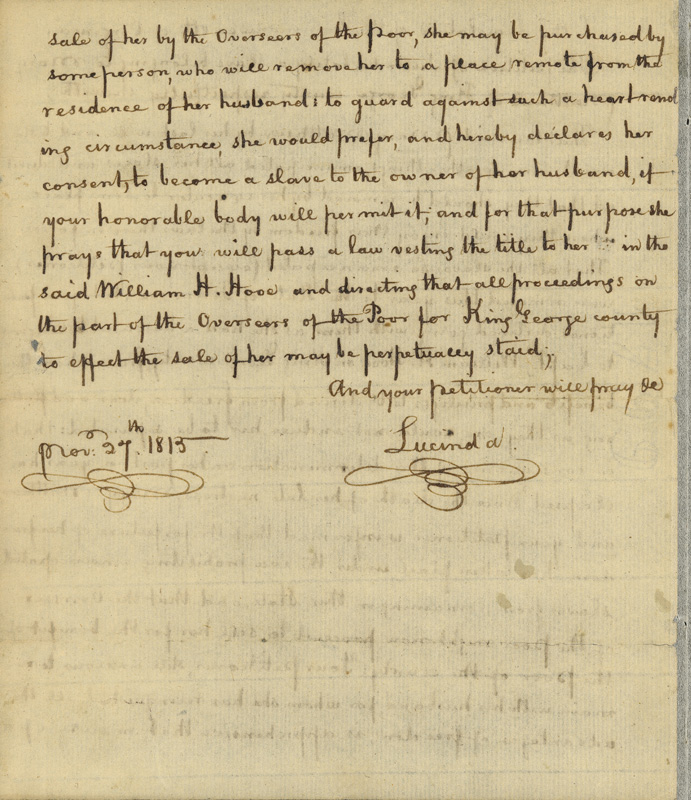 sale of her by the Overseers of the Poor, she may be purchased by
some person, who will remove her to a place remote from the
residence of her husband: to guard against such a heart rend
ing circumstance, she would prefer, and hereby declares her
consent, to become a slave to the owner of her husband, if
your honorable body will permit it, and for that purpose she
prays that you will pass a law vesting the title to her in the
said William H. Hooe and directing that all proceedings on
the part of the Overseers of the Poor for King George county
to effect the sale of her may be perpetually staid;
And your petitioner will pray &c
Novr. 27th. 1815
Lucinda.